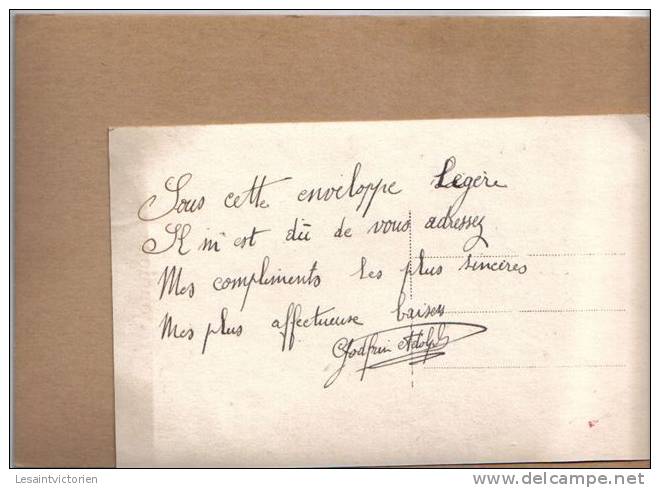 Sous cette enveloppe légère
Il m'est dû de vous adressez
Mes compliments les plus sincères
Mes plus affectueuse baisers
Godfrin Adolphe
Lesaintvictorien
delcampe.net